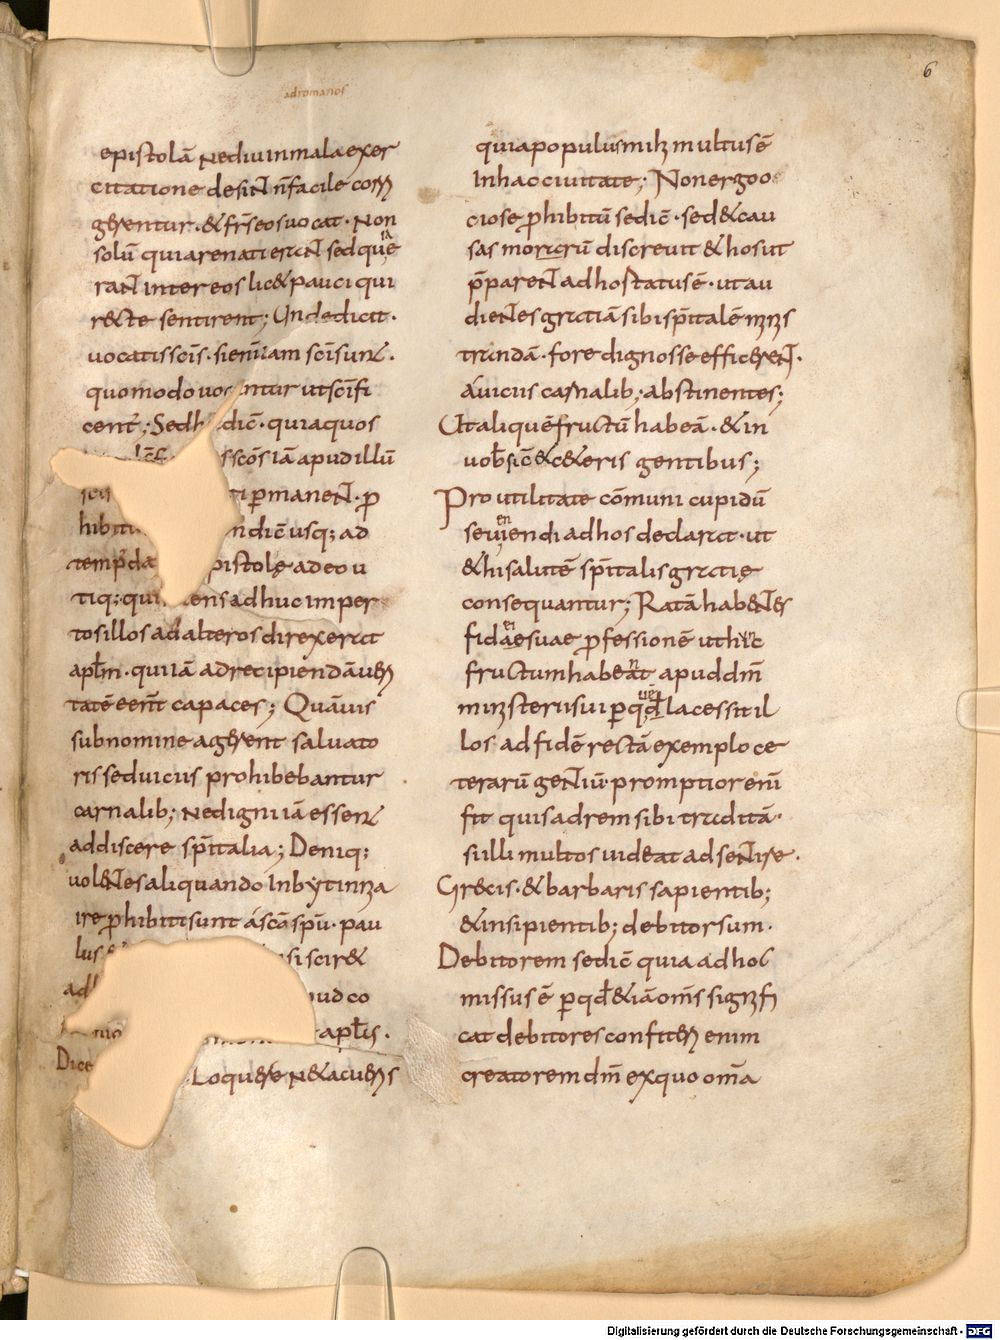 6
adromanos
epistolā nediu inmala exer
citatione desint n̄ facile corri
gerentur · & fr̄s eos uocat · Non
solū quia renati erant sed quia
rant inter eos lic& pauci qui
recte sentirent; Unde dicit ·
uocatis sc̄is · sieni iam sc̄i sunt ·
quomodo uo ntur ut sc̄ifi
cent ; Sed h dic̄ · quia quos
sscōs iā apud illū
ti ꝑmanent · ꝓ
hibitu ndic̄ usq; ad
temp da pistolę adeo u
tiq; qui ens adhuc imper
tos illos ad alteros direxerat
apl̄m · qui iā ad recipiendā ueri
tatē eēnt capaces ; Quāuis
sub nomine agerent saluato
ris sed uicus prohibebantur
carnalib; Ne digni iā essent
addiscere sp̄italia ; Deniq;
uolentes aliquando In bytinia
ire ꝓhibiti sunt a sc̄a spū · pau
lus si scir&
ad pud co
apl̄is ·
Dice Loquere n& acueris
quia populus mihi multus ē
In hac ciuitate; Non ergo o
ciose ꝓhibitū se dic̄ · sed & cau
sas morarū discreuit & hos ut
p̄parent ad hoc status ē · ut au
dientes gratiā sibi sp̄italē minis
trandā · fore dignos se efficerent ·
A uicus carnalib; abstinentes;
Ut aliquē fructū habeā · & in
uob̄ sic̄ & c&eris gentibus ;
Pro utilitate cōmuni cupidū
se ueniendi ad hos declarat · ut
& hi salutē sp̄italis gratię
consequantur; Ratā habentes
fidē suae ꝓfessionē ut hinc
fructum habeant apud dm̄
ministerii sui ꝑ quē lacessit il
los ad fidē rectā exemplo ce
terarū gentiū · promptior enī
fit quis ad rem sibi traditā ·
si illi multos uideat adsentire ·
Grecis · & barbaris sapientib;
& insipientib; debitor sum ·
Debitorem se dic̄ quia ad hoc
missus ē ꝑ qd & iā om̄s signifi
cat debitores confiteri enim
creatorem dm̄ ex quo om̄a
Digitalisierung gefördert durch die Deutsche Forschungsgemeinschaft - DFG